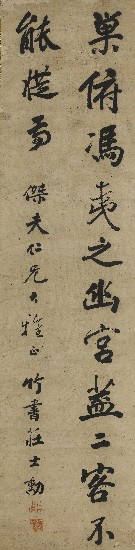 巢俯馮夷之幽宮蓋二客不
能從焉 傑夫仁兄大雅正 竹書莊士勳